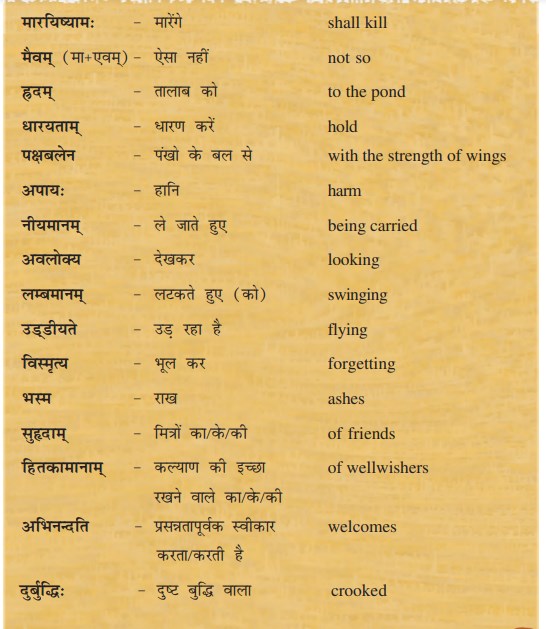 मारयिष्यामः - मारेंगे shall kill
मैवम् (मा+एवम्) - ऐसा नहीं not so
ह्रदम् - तालाब को to the pond
धारयताम् - धारण करें hold
पक्षबलेन - पंखो के बल से with the strength of wings
अपायः - हानि harm
नीयमानम् - ले जाते हुए being carried
अवलोक्य - देखकर looking
लम्बमानम् - लटकते हुए (को) swinging
उड्डीयते - उड़ रहा है flying
विस्मृत्य - भूल कर forgetting
भस्म - राख ashes
सुहृदाम् - मित्रों का/के/की of friends
हितकामानाम् - कल्याण की इच्छा of wellwishers
रखने वाले का/के/की
अभिनन्दति - प्रसन्नतापूर्वक स्वीकार welcomes
करता/करती है
दुर्बुद्धिः - दुष्ट बुद्धि वाला crooked